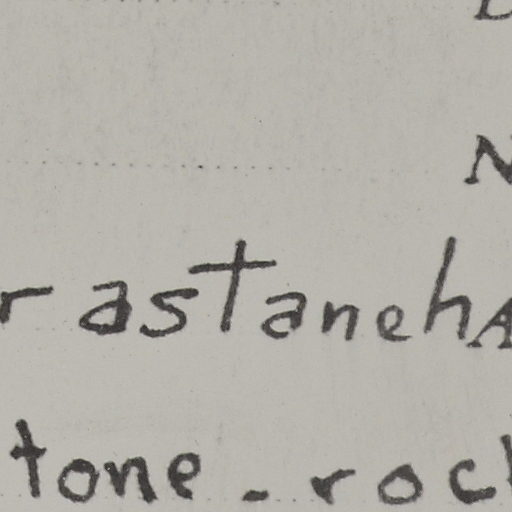 N
rastaneh
tone - roc